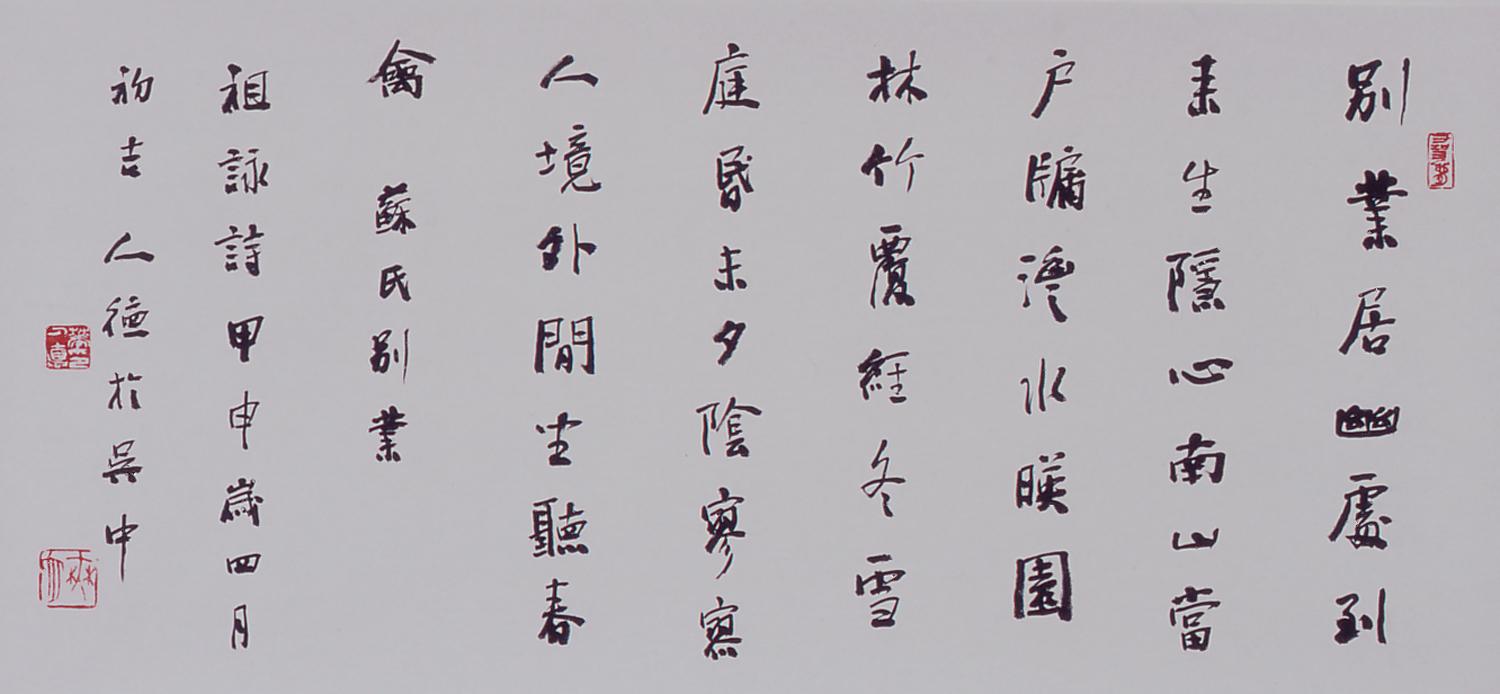 别業居幽處到
来生隱心南山當
户牖灃水暎園
林竹覆經冬雪
庭昏未夕陰寥寥
人境外閒坐聽春
禽 蘇氏别業
祖詠詩甲申歲四月
初吉人德於吳中